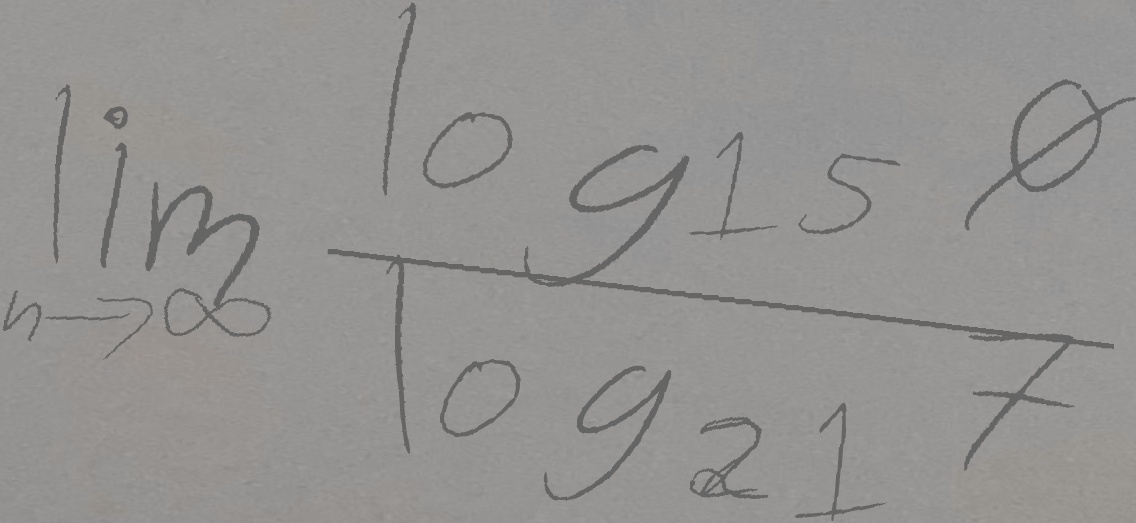 \lim_{n \to \infty} \frac{\log_{15} 0}{\log_{21} 7}